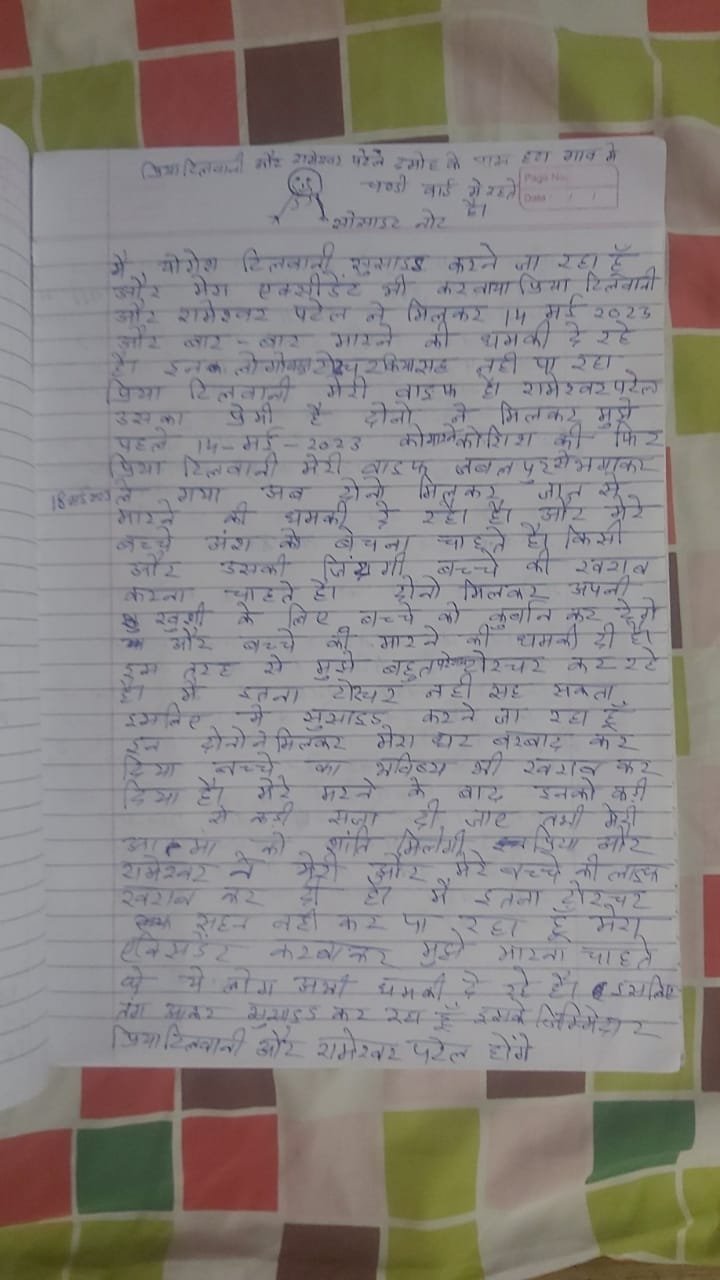 प्रिया टिलवानी और रामेश्वर पटेल दमोह के पास हटा गाव मे
चण्डी वार्ड मे रहते
है।
Page No.:
Date: / /
सोसाइट नोट
मै योगेश टिलवानी सुसाइड करने जा रहा हूँ
और मेरा एक्सीडेंट भी करवाया प्रिया टिलवानी
और रामेश्वर पटेल ने मिलकर 14 मई 2023
और बार-बार मारने की धमकी दे रहे
है।
प्रिया टिलवानी मेरी वाइफ है। रामेश्वर पटेल
उसका प्रेमी है दोनो ने मिलकर मुझे
पहले 14-मई-2023 को मारने कोशिश की फिर
प्रिया टिलवानी मेरी वाइफ जबलपुर से भगाकर
18 मई ले गया अब दोनो मिलकर जान से
मारने की धमकी दे रहे है। और मेरे
बच्चे अंश को बेचना चाहते है। किसी
और उसकी जिंदगी बच्चे की खराब
करना चाहते है। दोनो मिलकर अपनी
खुशी के लिए बच्चे को कुर्बान कर देगे
और बच्चे को मारने की धमकी दी है।
इस तरह से मुझे बहुत टोरचर कर रहे
है। मै इतना टोरचर नही सह सकता
इसलिए मे सुसाइड करने जा रहा हूँ
इन दोनो ने मिलकर मेरा घर बरबाद कर
दिया बच्चे का भविष्य भी खराब कर
दिया है। मेरे मरने के बाद इनको कड़ी
से कड़ी सजा दी जाए तभी मेरी
आत्मा को शांति मिलेगी प्रिया और
रामेश्वर ने मेरी और मेरे बच्चे की लाइफ
खराब कर दी है। मै इतना टोरचर
सहन नही कर पा रहा हूँ मेरा
एक्सिडेंट करवाकर मुझे मारना चाहते
थे ये लोग अभी धमकी दे रहे है। इसलिए
तंग आकर सुसाइड कर रहा हूँ इसके जिम्मेदार
प्रिया टिलवानी और रामेश्वर पटेल होंगे